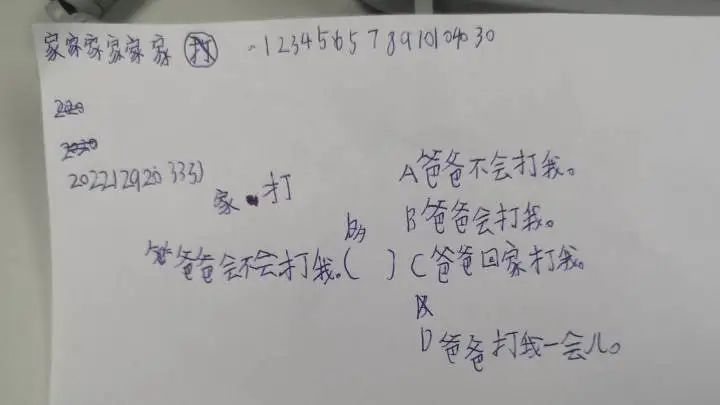 家家家家家家 打 .123456578910104030
202212920333)
家 打
A爸爸不会打我。
B爸爸会打我。
爸爸会不会打我。( ) C爸爸回家打我。
D爸爸打我一会儿。